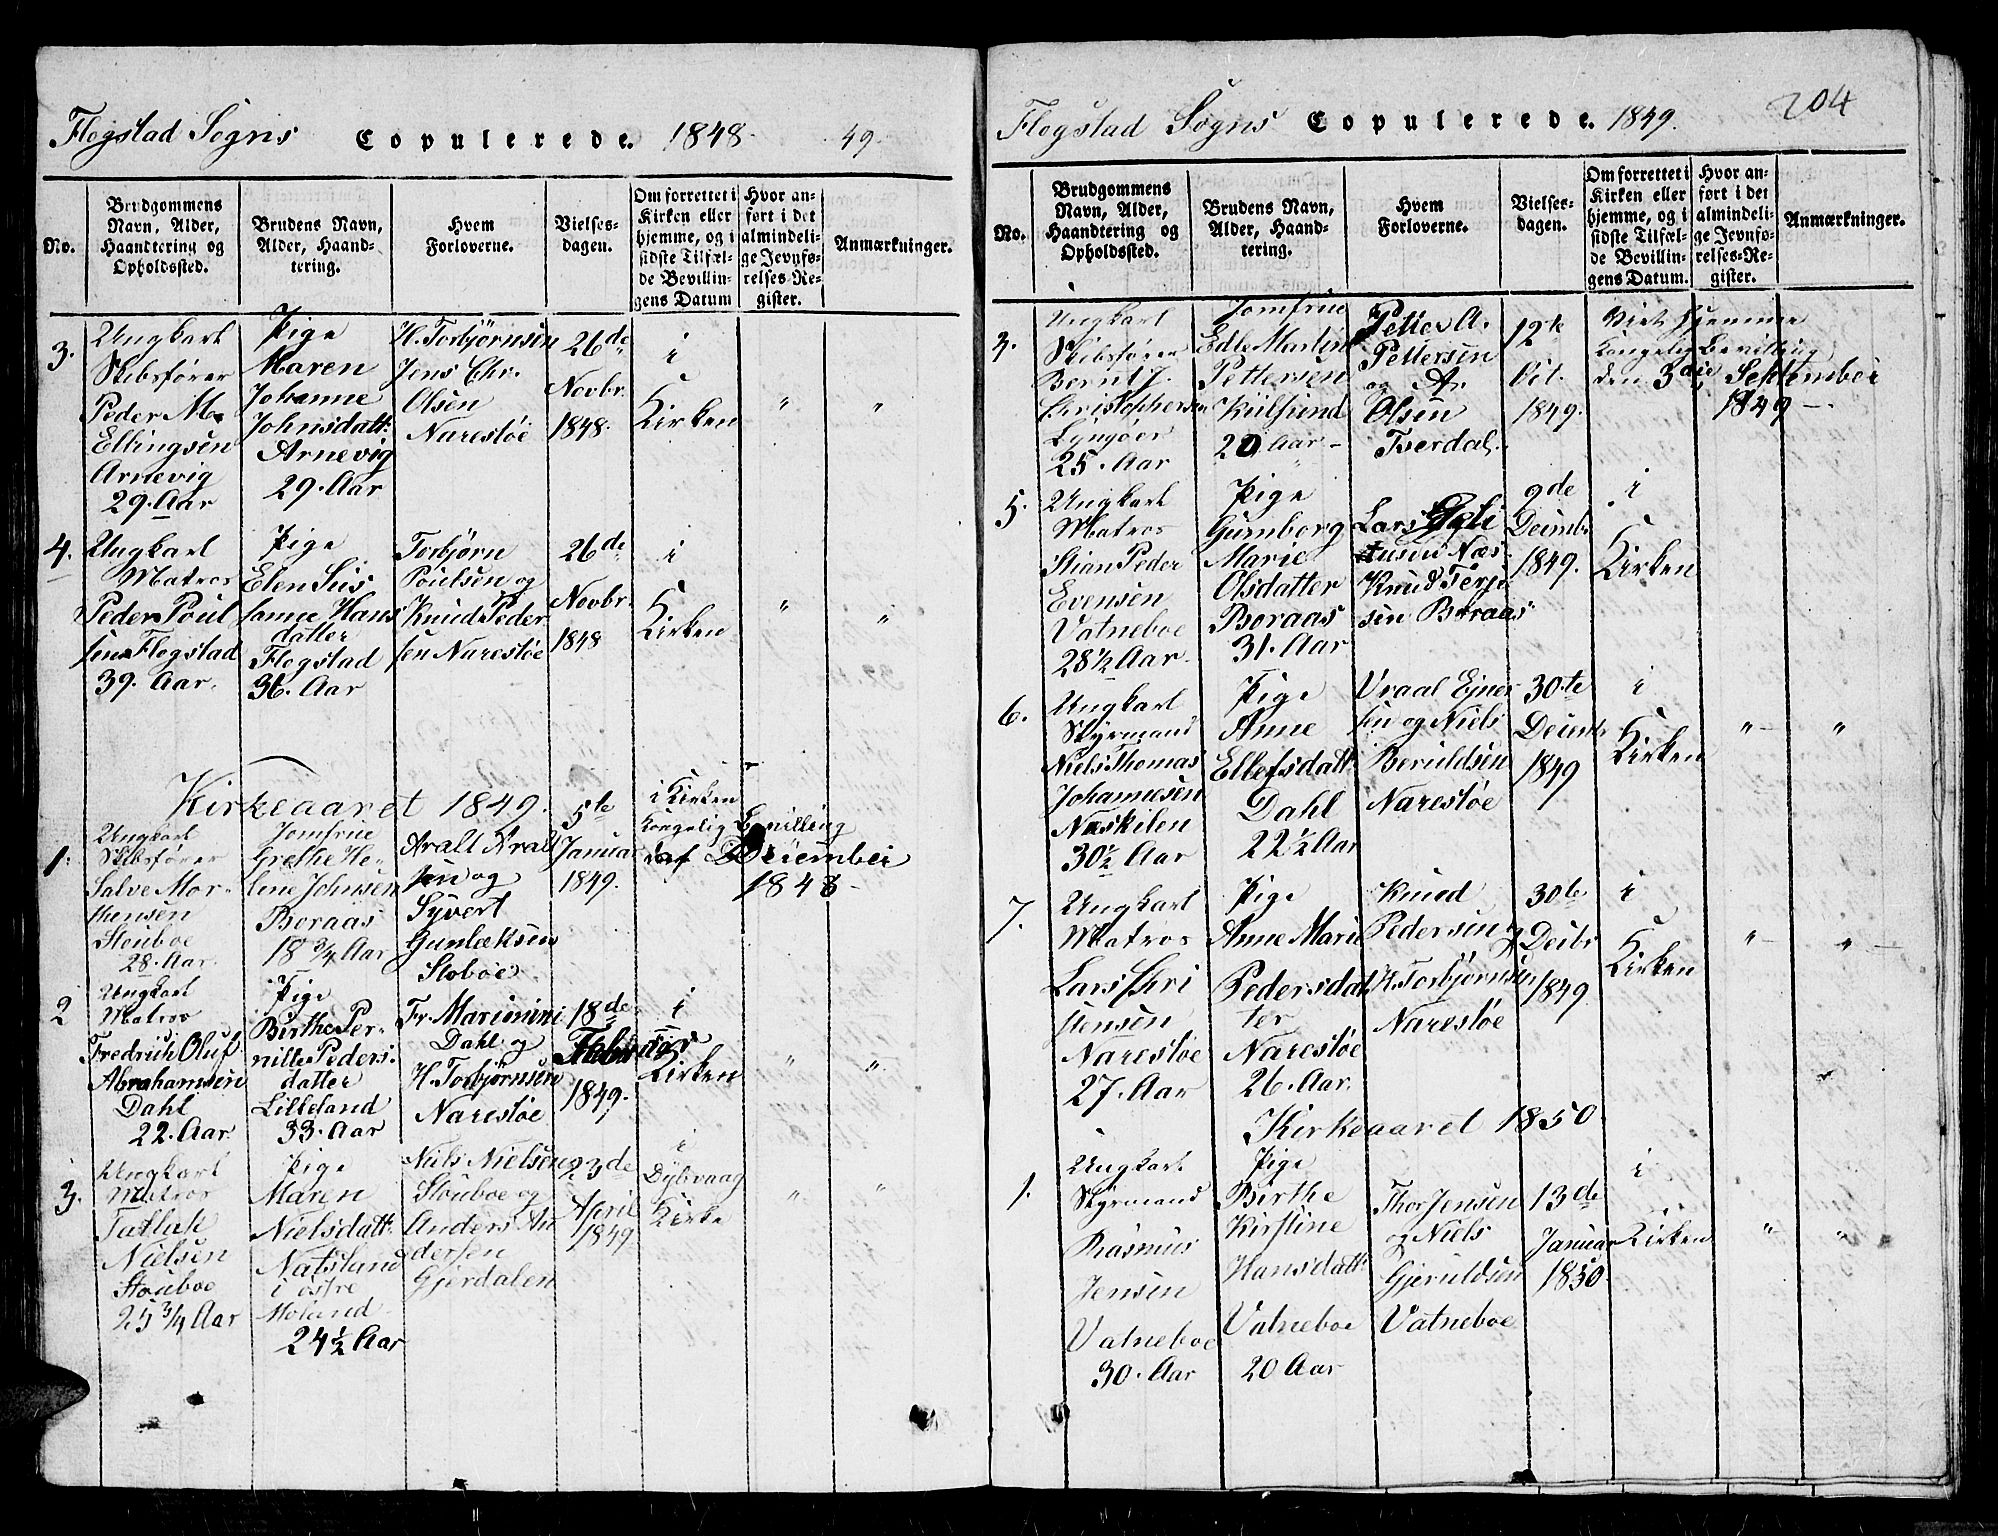 Flogstad Sogns Copulerede. 1848. 49.
No.
Brudgommens Navn, Alder, Haandtering og Opholdssted.
Brudens Navn, Alder, Haandtering.
Hvem Forloverne.
Vielsesdagen.
Om forrettet i Kirken eller hjemme, og i sidste Tilfælde Bevillingens Datum
Hvor anført i det almindelige Jevnførelses-Register.
Anmærkninger.
3.
Ungkarl
Skibsfører
Peder M.
Ellingsen
Arnevig
29. Aar
Pige
Maren
Johanne
Johnsdatt:
Arnevig
29. Aar
H. Torbjørnsen
Jens Chr.
Olsen
Narestøe
26de
Novbr.
1848.
i
Kirken
"
"
4.
Ungkarl
Matros
Peder Poul
sen Flogstad
39. Aar.
Pige
Elen Sus
sanne Hans
datter
Flogstad
36. Aar
Torbjørn
Poielsen og
Knud Peder
sen Narestøe
26de
Novbr.
1848
i
Kirken
"
"
Kirkeaaret 1849.
1.
Ungkarl
Skibsfører
Salve Mor-
thensen
Stouboe
28. Aar.
Jomfrue
Grethe He-
lene Johnsen
Boraas
18 3/4 Aar
Aralt Aralt
sen og
Syvert
Gunlæksen
Stoboe
5te
Januar
1849.
i Kirken
Kongelig Bevilling
af December
1848-
2
Ungkarl
Matros
Fredrich Oluf
Abrahamsen
Dahl
22. Aar.
Pige
Birthe Per-
nille Peders-
datter
Lilleland
33. Aar
Fr. Marinini
Dahl og
H. Torbjørnsen
Narestøe
18de
1849.
i
Kirken
"
"
3.
Ungkarl
Matros
Tallak
Nielsen
Stouboe
25 3/4 Aar
Pige
Maren
Nielsdatt:
Natsland
i østre
Moland
24 1/2 Aar
Niels Nielsen
Stouboe og
Anders An
dersen
Gjerdalen
23de
April
1849
i
Dybvaag
Kirke
"
"
Flogstad Sogns Copulerede. 1849.
204
No.
Brudgommens Navn, Alder, Haandtering og Opholdssted.
Brudens Navn, Alder, Haandtering.
Hvem Forloverne.
Vielsesdagen.
Om forrettet i Kirken eller hjemme, og i sidste Tilfælde Bevillingens Datum.
Hvor anført i det almindelige Jevnførelses-Register.
Anmærkninger.
4.
Ungkarl
Skibsfører
Bernt J.
Christophersen
Lyngøer
25. Aar
Jomfrue
Edle Martine
Pettersen
Kiilsund
20 Aar-
Petter A.
Pettersen
og Ar
Olsen
Tverdal.
12te
Oct.
1849.
Viet hjemme
Kongelig Bevilling
den 3die September
1849-
5.
Ungkarl
Matros
Stian Peder
Evensen
Vatneboe
28 1/2 Aar.
Pige
Gunborg
Marie
Olsdatter
Boraas
31. Aar
Lars
Næs
Knud Terje
sen Boraas
9de
Decmbr
1849.
i
Kirken
6.
Ungkarl
Styrmand
Niels Thomas
Johannesen
Naskilen
30 1/2 Aar
Pige
Anne
Ellefsdatt:
Dahl
22 1/2 Aar
Vraal Ejner
sen og Niels
Beruldsen
Narestøe
30te
Decmbr
1849
i
Kirken
"
"
7.
Ungkarl
Matros
Lars Chri
stensen
Narestøe
27. Aar
Pige
Anne Marie
Pedersdat
ter
Narestøe
26. Aar.
Knud
Pedersen og
H. Torbjørnsen
Narestøe
30te
Decbr
1849.
i
Kirken
"
"
Kirkeaaret 1850.
1.
Ungkarl
Styrmand
Rasmus
Jensen
Vatneboe
30. Aar
Pige
Birthe
Kirstine
Hansdatt:
Vatneboe
20 Aar
Thor Jensen
og Niels
Gjeruldsen
Vatneboe
13de
Januar
1850
i
Kirken
"
"